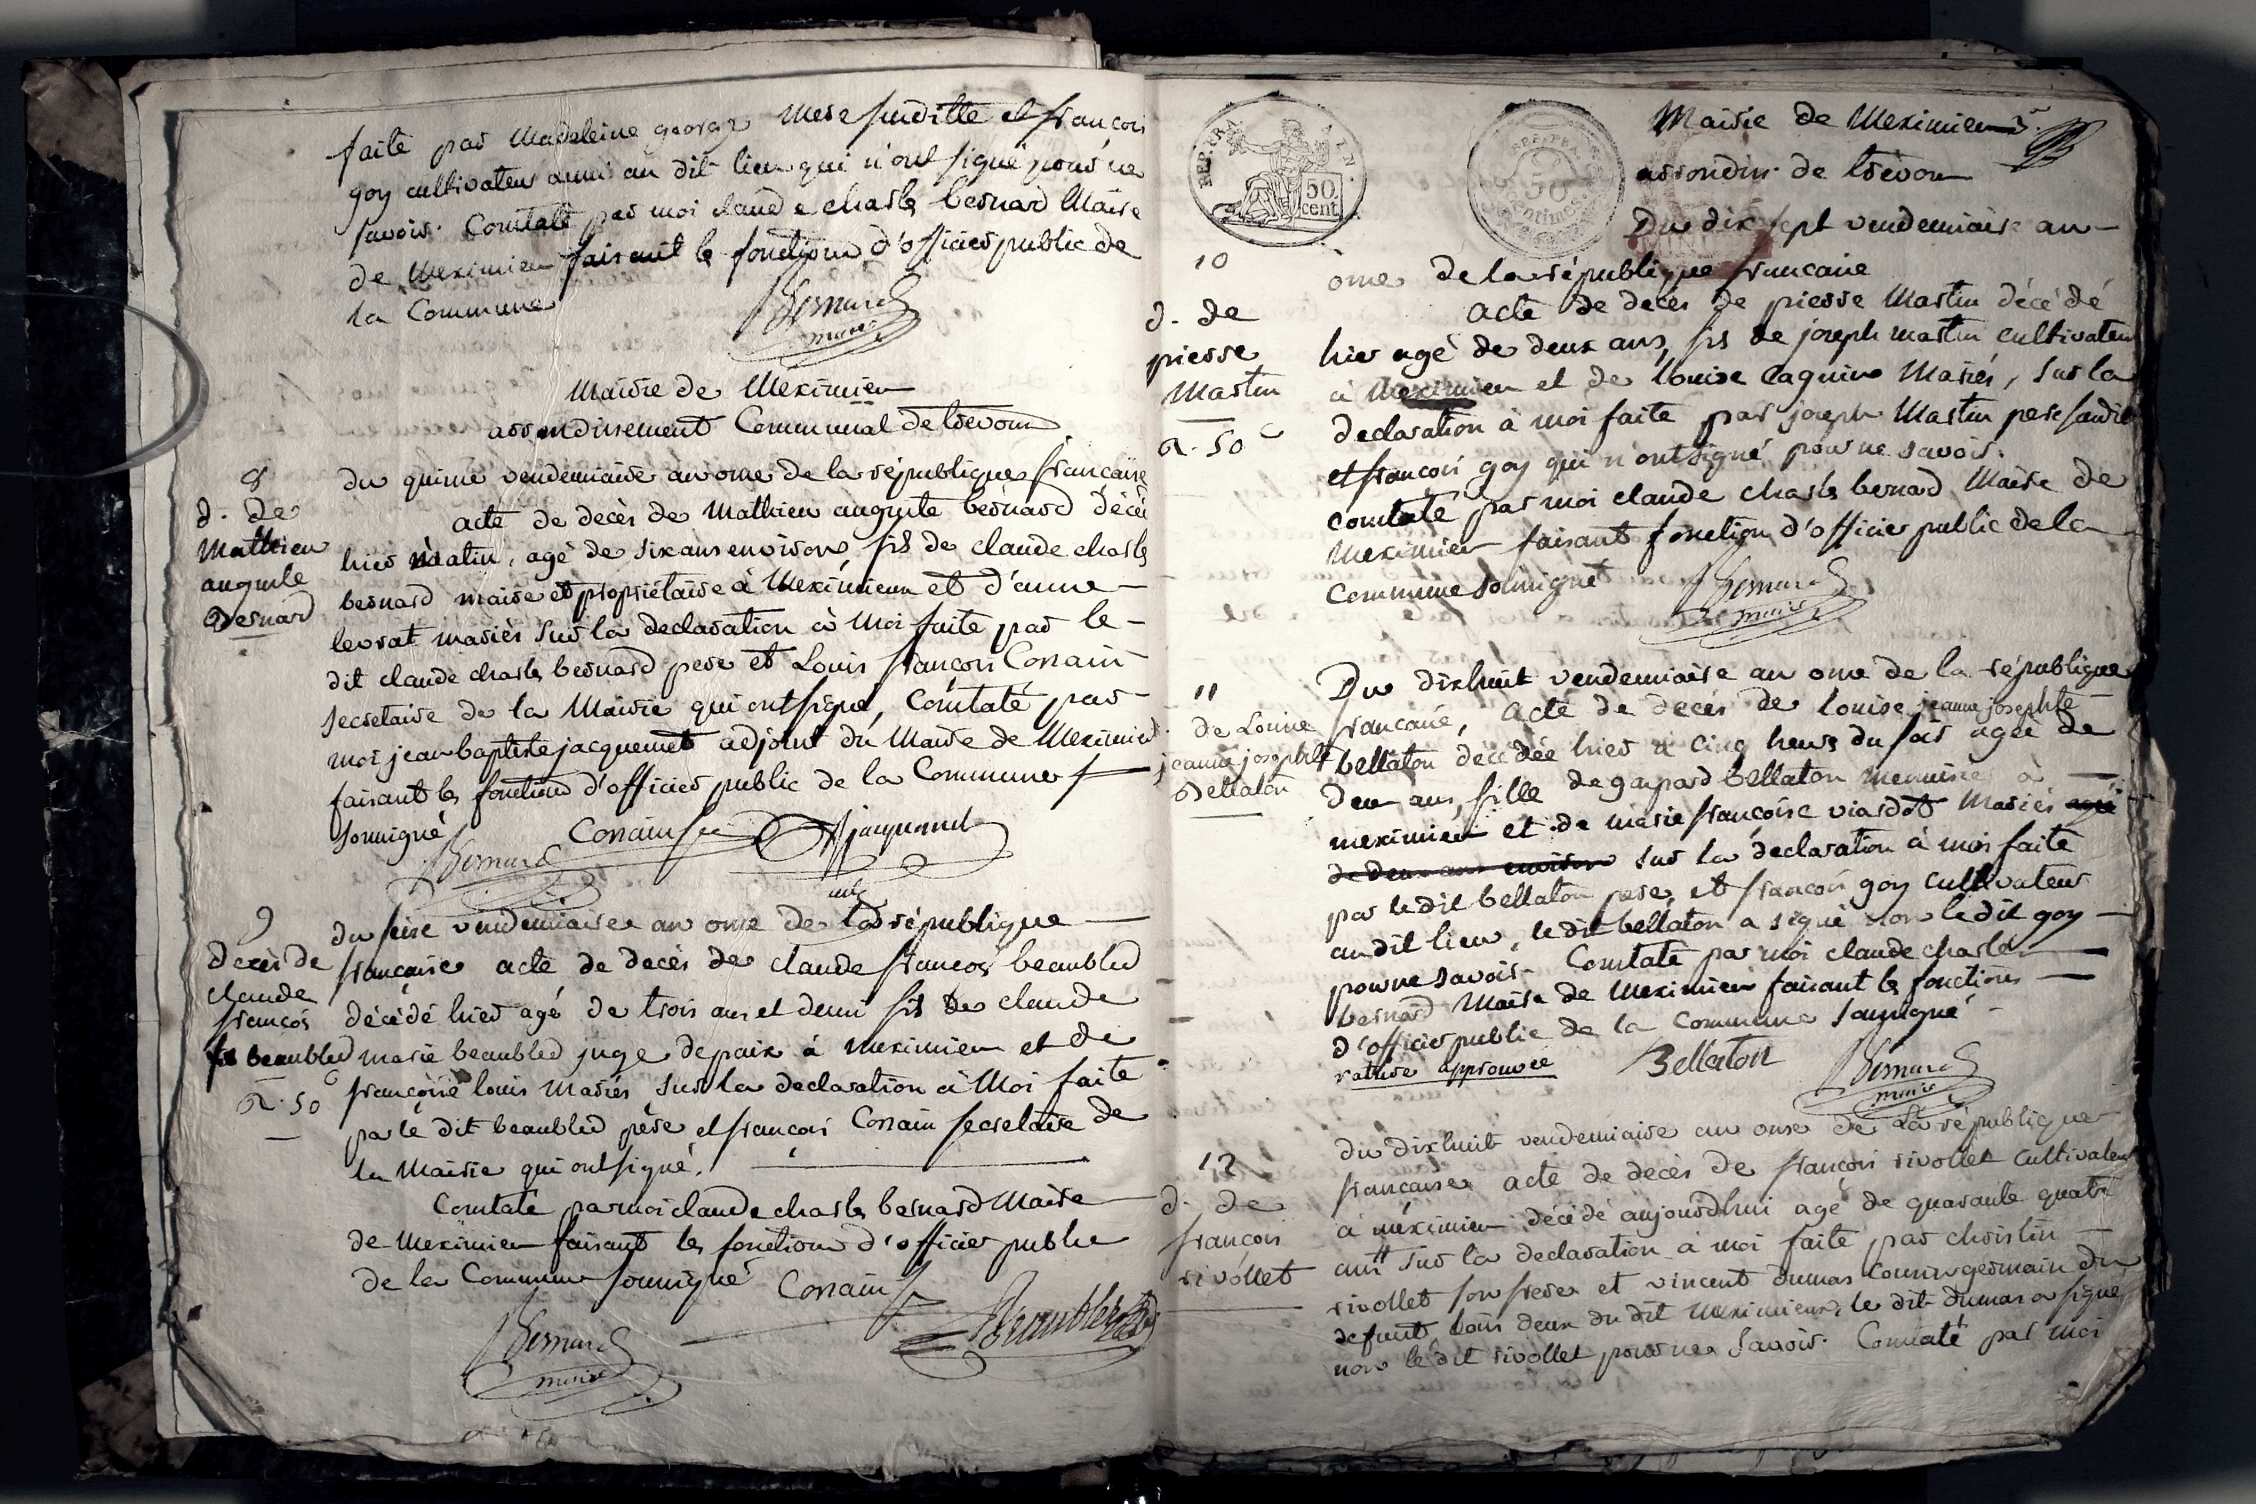 faite par Madeleine george mere susditte et françois
goy cultivateur aussi au dit lieu qui n'ont signé pour ne
savoir. Constaté par moi claude charles bernard Maire
de Meximieu faisant les fonctions d'officier public de
la Commune
Bernard
maire
Mairie de Meximieu
arrondissement Communal de trevoux
8
d. de
Mathieu
auguste
Bernard
du quinze vendemiaire an onze de la république francaise
acte de decès de Mathieu auguste bernard décédé
hier matin, agé de six ans environ, fils de claude charles
bernard maire et propriétaire à Meximieux et d'anne
levrat mariés sur la declaration à Moi faite par le
dit claude charles bernard pere et Louis françois Cossain
secretaire de la Mairie qui ont signé, Constaté par
moi jean baptiste jacquemet adjoint du Maire de Meximieu
faisant les fonctions d'officier public de la Commune
soussigné
Bernard Cossain Jacquemet
9
decès de
claude
françois
beaubled
R. 50 c
du seize vendemiaire an onze de la république
française acte de decès de claude françois beaubled
décédé hier agé de trois ans et demi fils de claude
marie beaubled juge de paix à meximieu et de
françoise louis mariés sur la declaration à Moi faite
par le dit beaubled père et françois Cossain secretaire de
la Mairie qui ont signé.
Constaté par moi claude charles bernard Maire
de Meximieu faisant les fonctions d'officier public
de la Commune soussigné Cossain
Bernard
maire
Beaubled
REP. FRA.
50
cent.
REP. FRA.
50
centimes
Mairie de Meximieu
arrondiss. de trévoux
Du dix sept vendemiaire an
10
d. de
pierre
Martin
R. 50 c
onze de la république francaise
acte de decès de pierre Martin décédé
hier agé de deux ans, fils de joseph martin cultivateur
à Meximieu et de Louise Caquin Mariés, sur la
declaration à moi faite par joseph Martin pere susdit
et françois goy qui n'ont signé pour ne savoir.
constaté par moi claude charles bernard Maire de
Meximieu faisant fonction d'officier public de la
Commune soussigné
Bernard
maire
11
de Louise
jeanne josephte
Bellaton
Du dixhuit vendemiaire an onze de la république
francaise, acte de decès de louise jeanne josephte
bellaton décédée hier à cinq heures du soir agée de
deux ans, fille de gaspard bellaton menuisier à
meximieu et de marie françoise viardot Mariés agée
de deux ans environ sur la declaration à moi faite
par le dit bellaton pere, et françois goy cultivateur
au dit lieu, le dit bellaton a signé non le dit goy
pour ne savoir. Constaté par moi claude charles
bernard Maire de Meximieu faisant les fonctions
d'officier public de la Commune soussigné
rature approuvée Bellaton Bernard
maire
12
d. de
françois
rivollet
du dixhuit vendemiaire an onze de La république
francaise acte de decès de françois rivollet cultivateur
à méximieu décédé aujourdhui agé de quarante quatre
ans sur la declaration à moi faite par christin
rivollet son frere et vincent dumas Cousin germain du
defunt, tous deux du dit Meximieux, le dit dumas a signé
non le dit rivollet pour ne Savoir. Constaté par moi